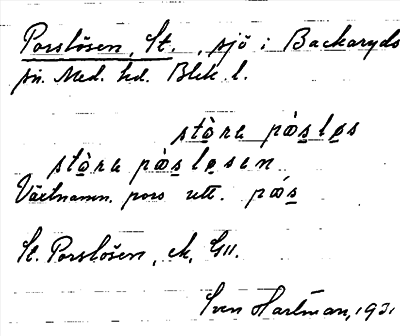 Porslösen, St. , sjö i Backaryds
sn. Med. hd. Blek. l.
stòra pòs̲lø̲s
stòra pòs̲lø̲sen
Växtnamn. pors utt. pós̲
St. Porslösen, ek, GII.
Sven Hartman, 1931